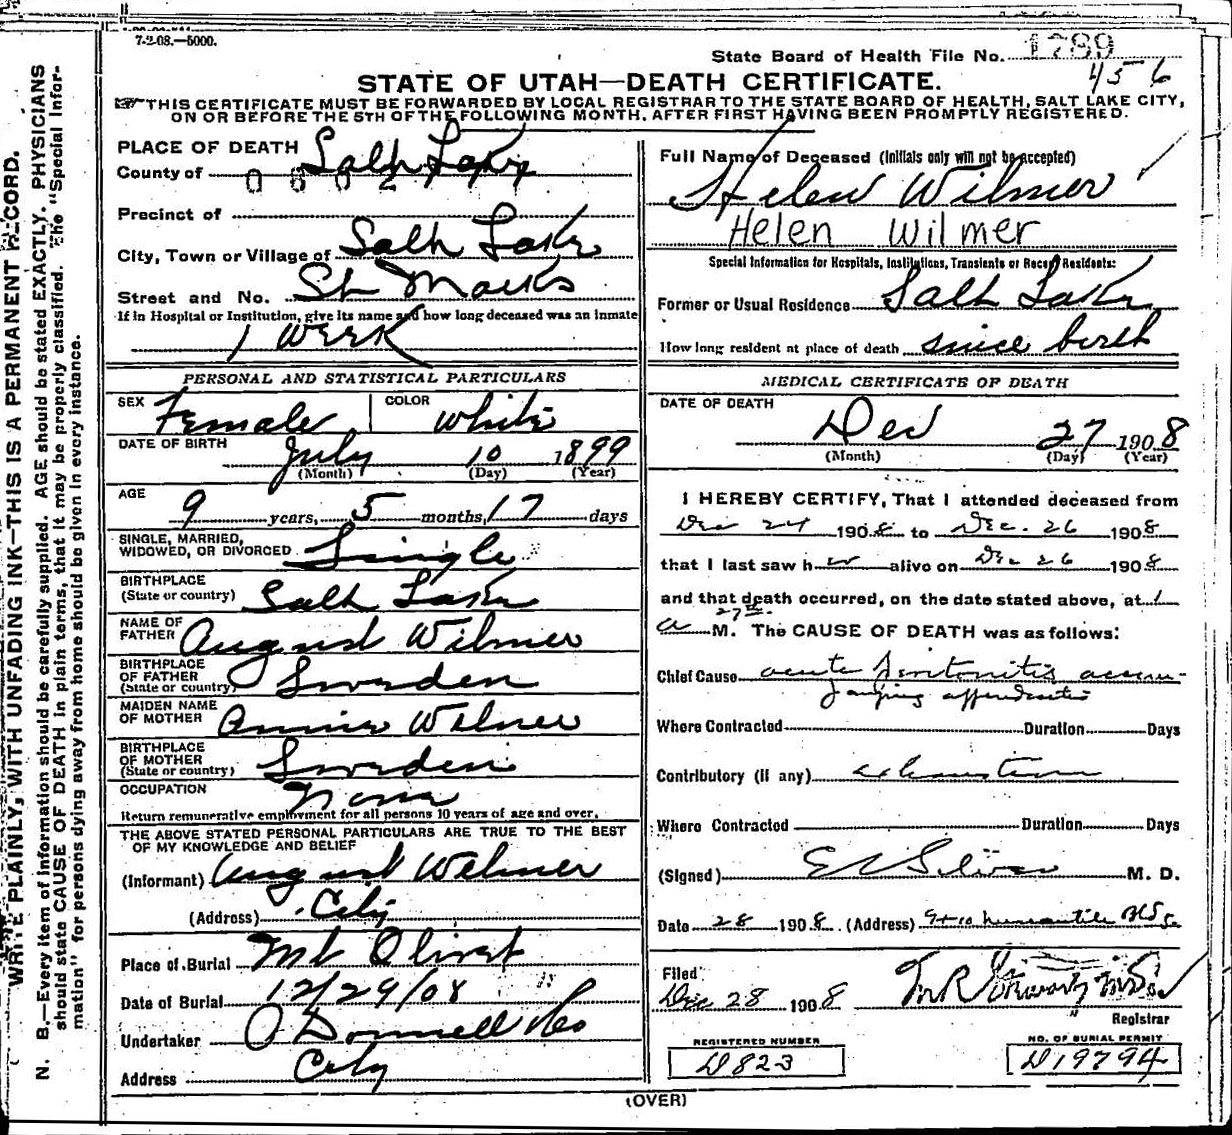 7-2-08.—5000.
State Board of Health File No. 1789
456
STATE OF UTAH—DEATH CERTIFICATE.
THIS CERTIFICATE MUST BE FORWARDED BY LOCAL REGISTRAR TO THE STATE BOARD OF HEALTH, SALT LAKE CITY,
ON OR BEFORE THE 5TH OF THE FOLLOWING MONTH, AFTER FIRST HAVING BEEN PROMPTLY REGISTERED.
WRITE PLAINLY, WITH UNFADING INK—THIS IS A PERMANENT RECORD.
N. B.—Every item of information should be carefully supplied. AGE should be stated EXACTLY. PHYSICIANS
should state CAUSE OF DEATH in plain terms, that it may be properly classified. The "Special Infor-
mation" for persons dying away from home should be given in every instance.
PLACE OF DEATH
County of Salt Lake
Precinct of
City, Town or Village of Salt Lake
Street and No. St Marks
If in Hospital or Institution, give its name and how long deceased was an inmate
1 week
PERSONAL AND STATISTICAL PARTICULARS
SEX Female COLOR White
DATE OF BIRTH July 10 1899
(Month) (Day) (Year)
AGE 9 years, 5 months, 17 days
SINGLE, MARRIED,
WIDOWED, OR DIVORCED Single
BIRTHPLACE
(State or country) Salt Lake
NAME OF
FATHER August Wilmer
BIRTHPLACE
OF FATHER
(State or country) Sweden
MAIDEN NAME
OF MOTHER Annie Wilmer
BIRTHPLACE
OF MOTHER
(State or country) Sweden
OCCUPATION None
Return remunerative employment for all persons 10 years of age and over.
THE ABOVE STATED PERSONAL PARTICULARS ARE TRUE TO THE BEST
OF MY KNOWLEDGE AND BELIEF
(Informant) August Wilmer
(Address) City
Place of Burial Mt Olivet
Date of Burial 12/29/08
Undertaker O Donnell & Co
Address City
Full Name of Deceased (Initials only will not be accepted)
Helen Wilmer
Helen Wilmer
Special Information for Hospitals, Institutions, Transients or Recent Residents:
Former or Usual Residence Salt Lake
How long resident at place of death since birth
MEDICAL CERTIFICATE OF DEATH
DATE OF DEATH
Dec 27 1908
(Month) (Day) (Year)
I HEREBY CERTIFY, That I attended deceased from
Dec 24 1908 to Dec. 26 1908
that I last saw her alive on Dec 26 1908
and that death occurred, on the date stated above, at 1
27th
a M. The CAUSE OF DEATH was as follows:
Chief Cause acute peritonitis accom-
panying appendicitis
Where Contracted Duration Days
Contributory (if any) exhaustion
Where Contracted Duration Days
(Signed) M. D.
Date 28 1908. (Address) 9+10 Mercantile Bldg
Filed
Dec 28 1908
Registrar
REGISTERED NUMBER
D823
NO. OF BURIAL PERMIT
D19794
(OVER)